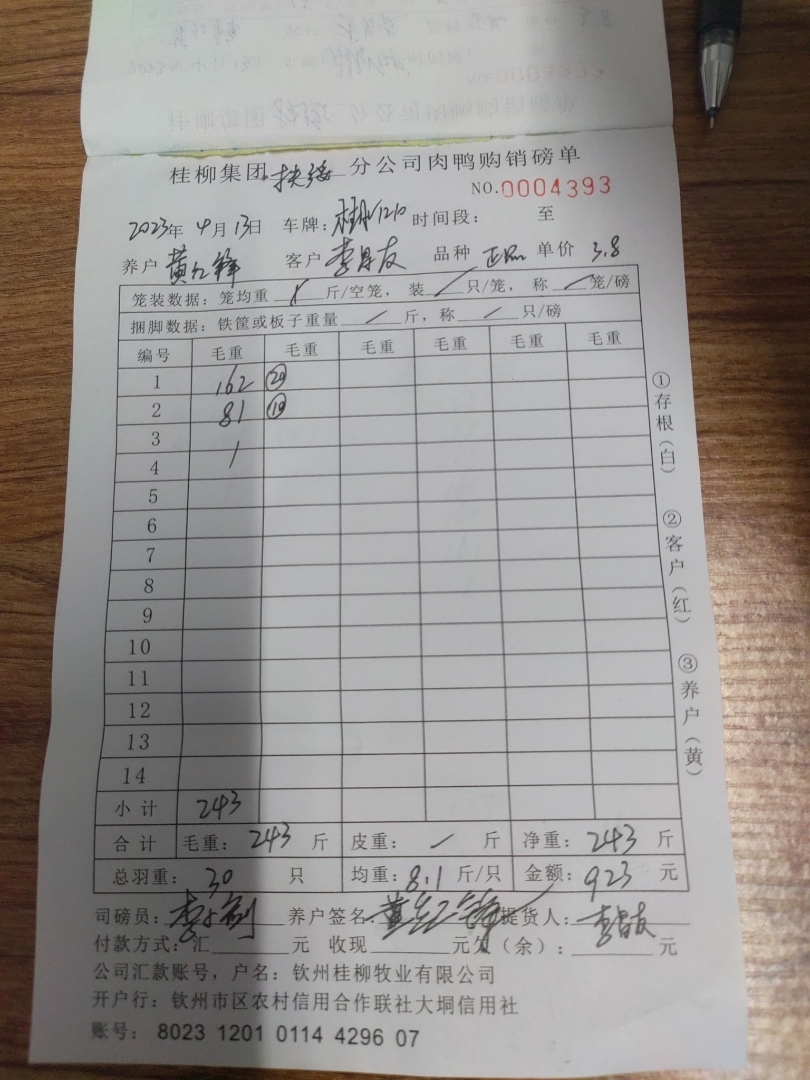 桂柳集团扶绥分公司肉鸭购销磅单
NO.0004393
2023年 4月13日 车牌: 1210 时间段: 至
养户 黄红锋 客户 李昌友 品种 正品 单价 3.8
笼装数据: 笼均重 / 斤/空笼, 装 / 只/笼, 称 / 笼/磅
捆脚数据: 铁筐或板子重量 / 斤, 称 / 只/磅
编号 毛重 毛重 毛重 毛重 毛重 毛重
1 162 ⑳
2 81 ⑩
3
4
5
6
7
8
9
10
11
12
13
14
小计 243
合计 毛重: 243 斤 皮重: / 斤 净重: 243 斤
总羽重: 30 只 均重: 8.1 斤/只 金额: 923 元
司磅员: 养户签名: 黄红锋 提货人: 李昌友
付款方式: 汇 元 收现 元 欠(余): 元
公司汇款账号, 户名: 钦州桂柳牧业有限公司
开户行: 钦州市区农村信用合作联社大垌信用社
账号: 8023 1201 0114 4296 07
①存根(白)
②客户(红)
③养户(黄)